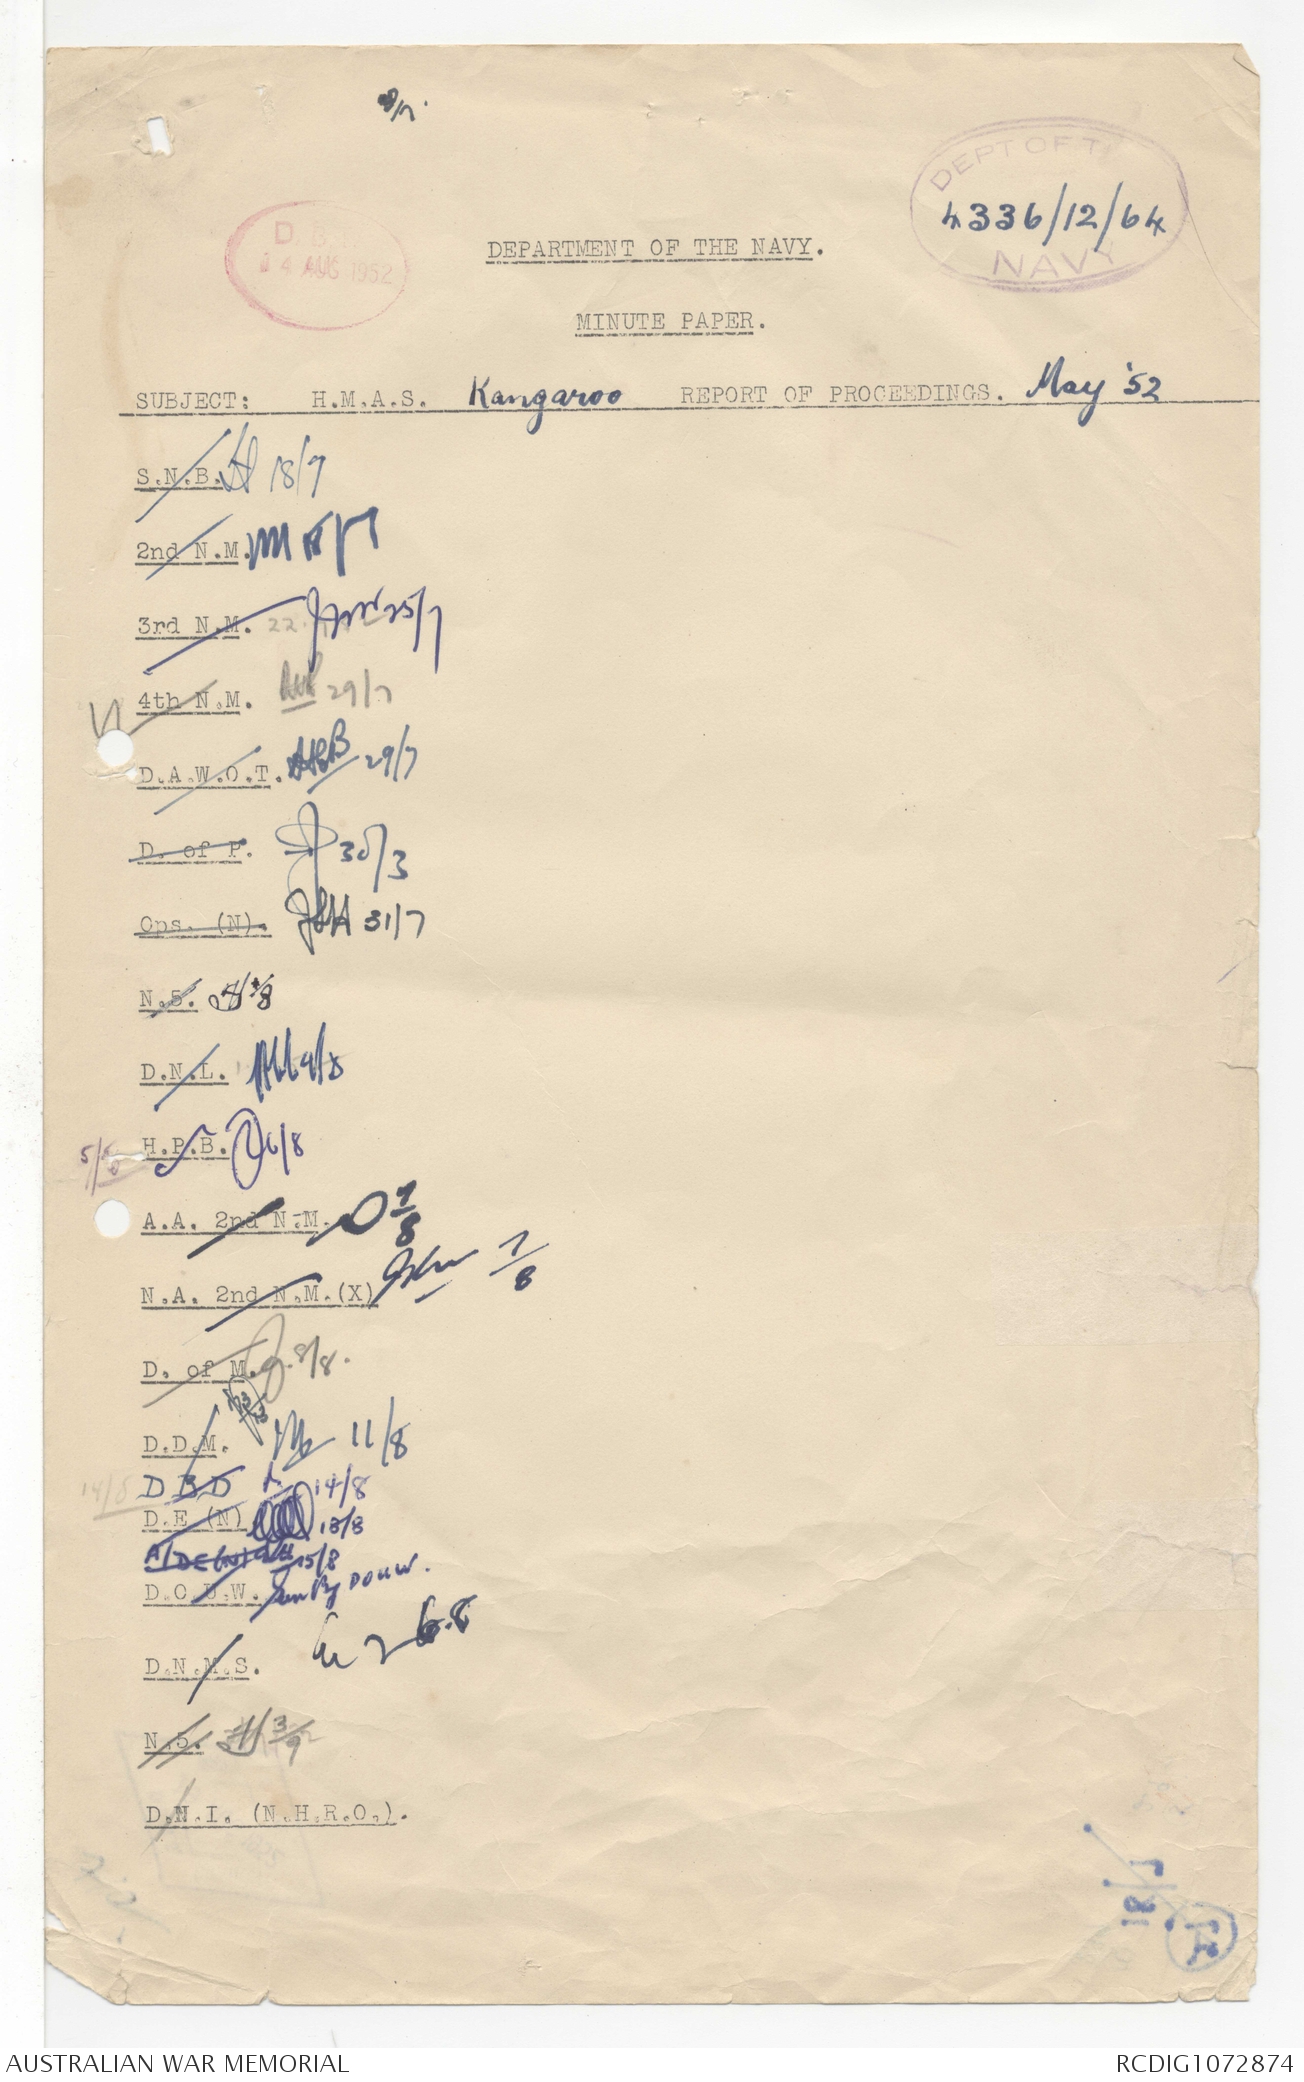 8/7.
DEPT OF T
4336/12/64
NAVY
D.
4 AUG 1952
DEPARTMENT OF THE NAVY.
MINUTE PAPER.
SUBJECT: H.M.A.S. Kangaroo REPORT OF PROCEEDINGS. May '52
S.N.B. 18/7
2nd N.M.
3rd N.M. 22. 25/7
4th N.M. 29/7
D.A.W.O.T. 29/7
D. of P. 30/3
Ops. (N). 31/7
N.5. 1/8
D.N.L. 4/8
5/8 H.P.B. 6/8
A.A. 2nd N.M. 7/8
N.A. 2nd N.M.(X) 7/8
D. of M. 8/8.
D.D.M. 11/8
14/8 DBD 14/8
D.E (N) 13/8
A/DE(N) 15/8
D.O.U.W. Seen By DOUW.
D.N.M.S. 26.8
N.5. 3/9
D.N.I. (N.H.R.O.).
18/7
AUSTRALIAN WAR MEMORIAL
RCDIG1072874